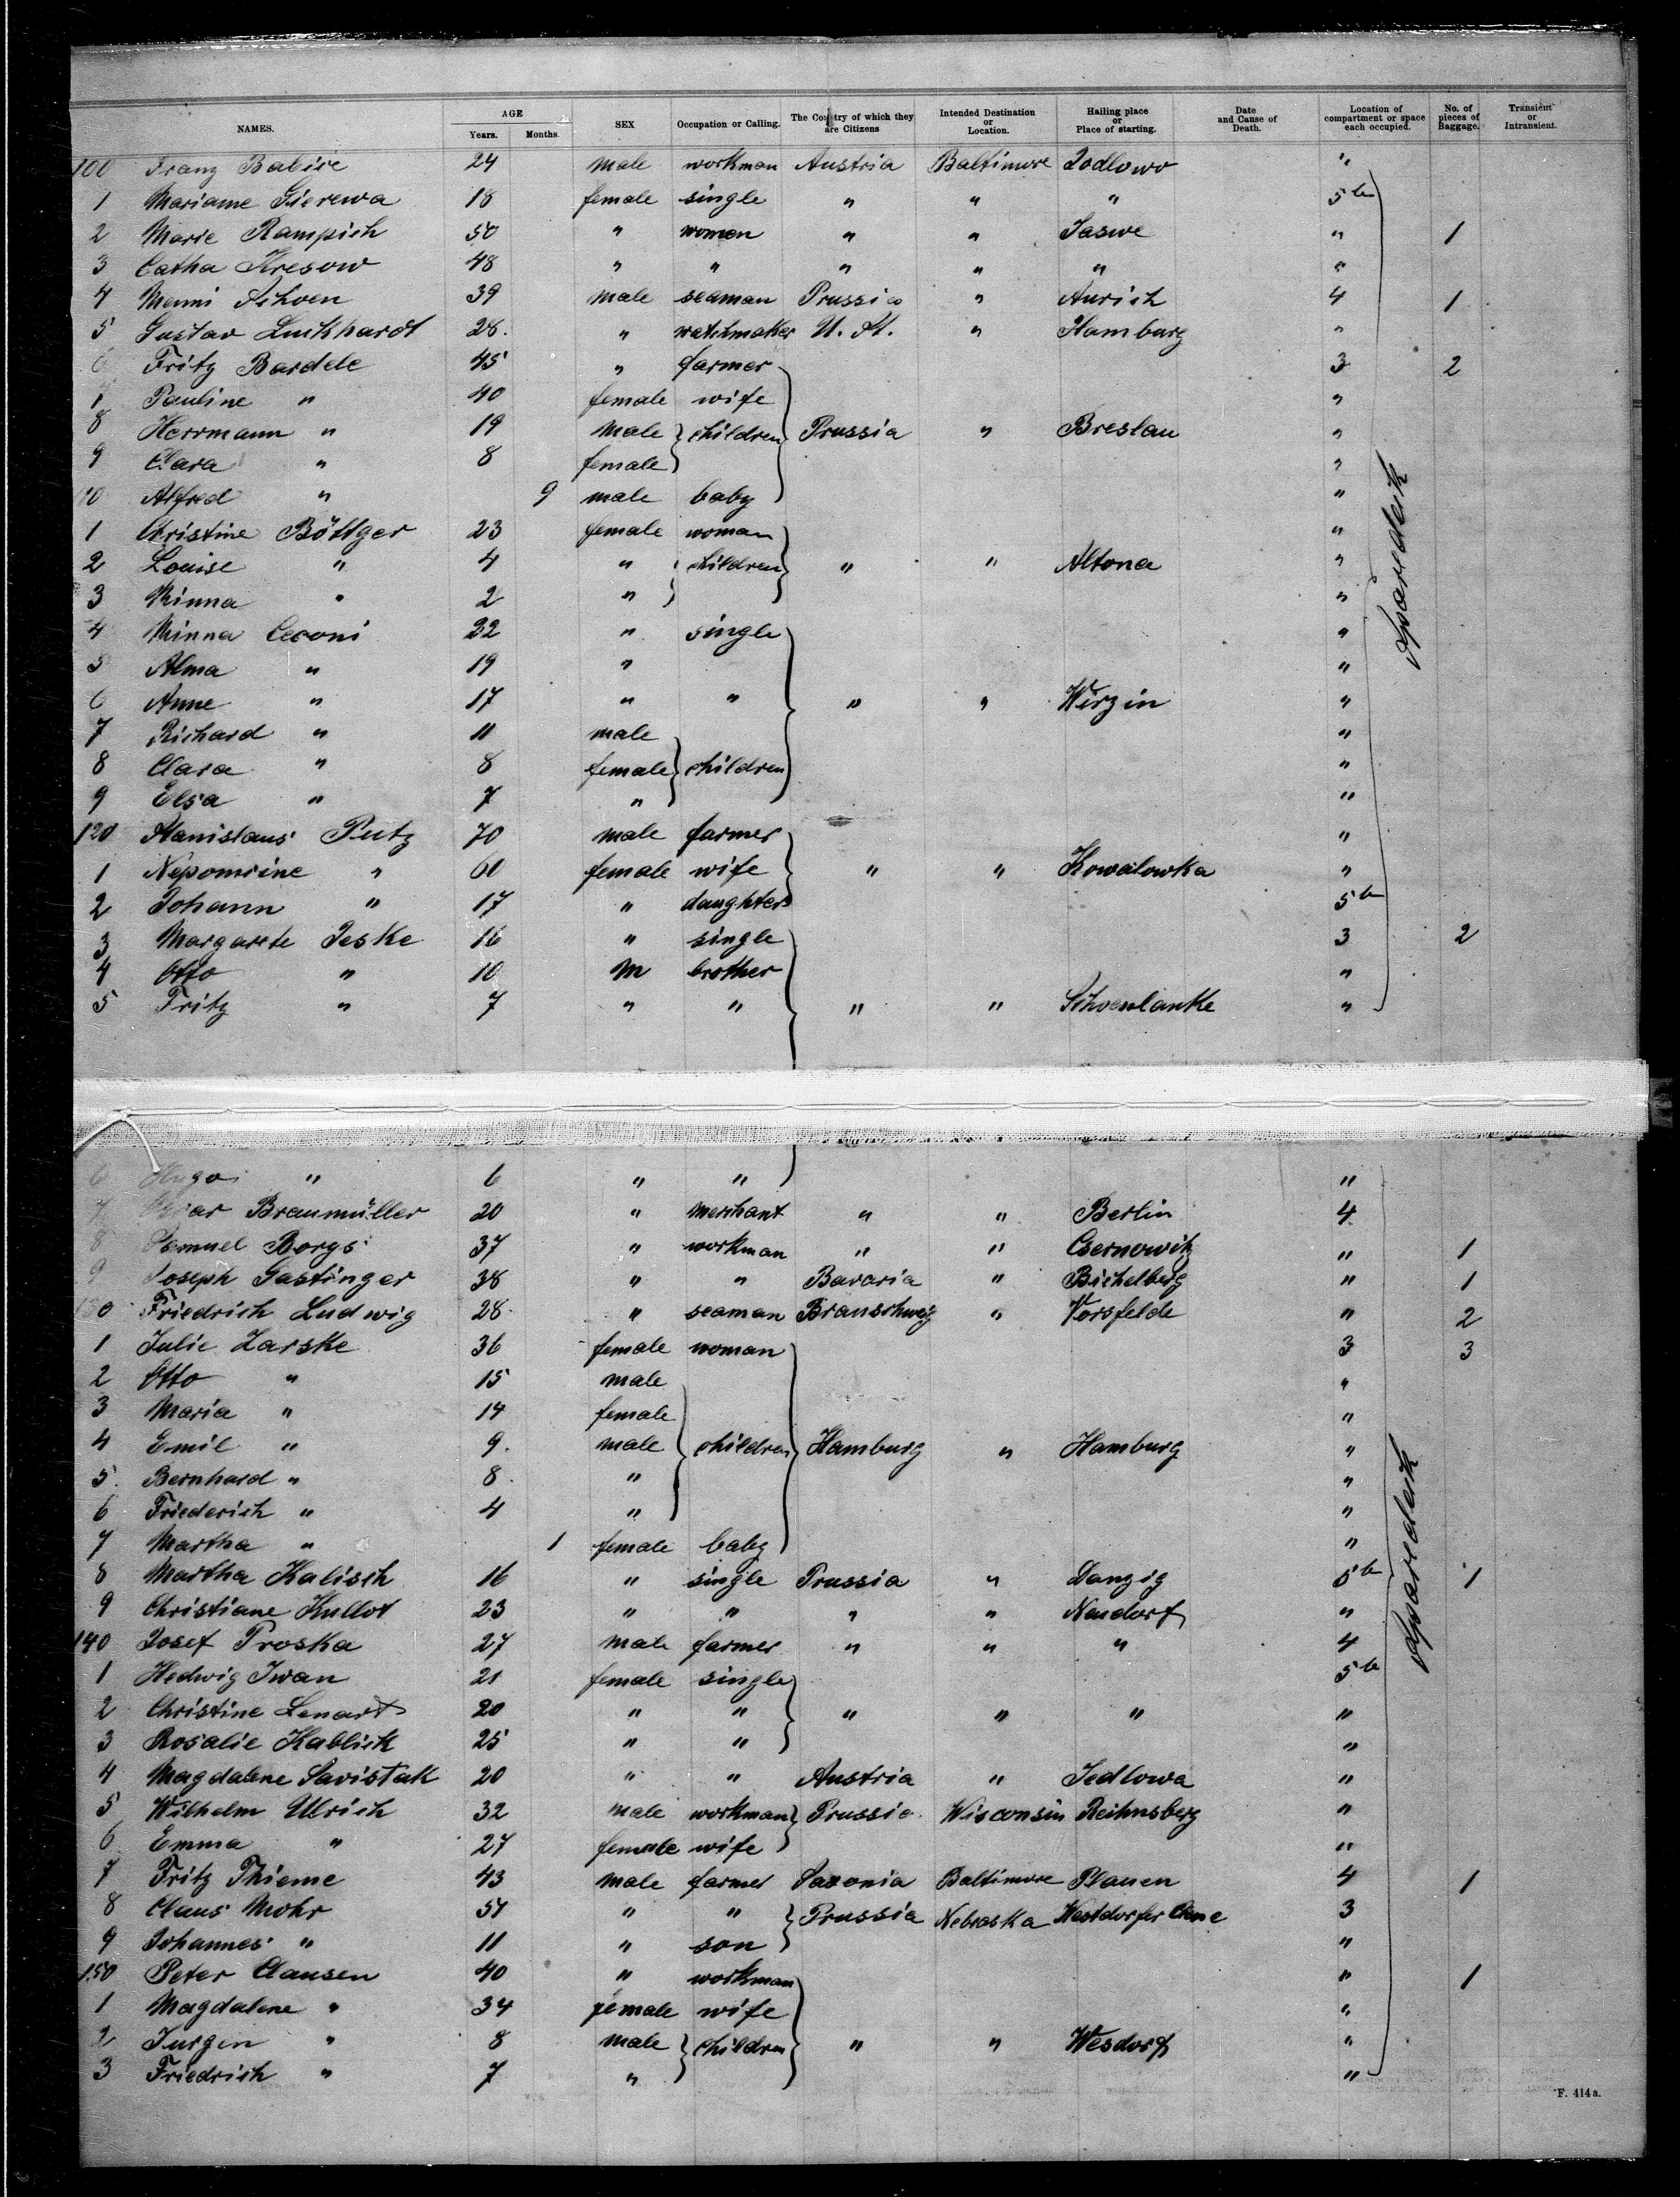 NAMES. AGE Years. Months. SEX Occupation or Calling. The Country of which they are Citizens Intended Destination or Location. Hailing place or Place of starting. Date and Cause of Death. Location of compartment or space each occupied. No. of pieces of Baggage. Transient or Intransient.
100 Franz Babire 24 male workman Austria Baltimore Jodlowo "
1 Marianne Gierewa 18 female single " " " 5b
2 Marie Rampich 50 " women " " Jaswe " 1
3 Catha Kresow 48 " " " " " "
4 Menni Schoen 39 male seaman Prussia " Aurich 4 1
5 Gustav Luckhardt 28. " watchmaker U. St. " Hamburg "
6 Fritz Bardele 45 " farmer 3 2
7 Pauline " 40 female wife "
8 Herrmann " 19 male children Prussia " Breslau "
9 Clara " 8 female "
10 Alfred " 9 male baby "
1 Christine Böttger 23 female woman "
2 Louise " 4 " children " " Altona "
3 Minna " 2 " "
4 Minna Ceconi 32 " single "
5 Alma " 19 " "
6 Anne " 17 " " " " Wirzin "
7 Richard " 11 male "
8 Clara " 8 female children "
9 Elsa " 7 " "
120 Stanislaus Putz 70 male farmer "
1 Nepomcine " 60 female wife " " Kowalowka "
2 Johann " 17 " daughters 5b
3 Margarete Jeske 16 " single 3 2
4 Otto " 10 M brother "
5 Fritz " 7 " " " " Schoenlanke "
6 Hugo " 6 " " "
7 Oscar Braumüller 20 " merchant " " Berlin 4
8 Samuel Borgs 37 " workman " " Csernowitz " 1
9 Joseph Gastinger 38 " " Bavaria " Bichelberg " 1
130 Friedrich Ludwig 28. " seaman Braunschweig " Vorsfelde " 2
1 Julie Zarske 36 female woman 3 3
2 Otto " 15 male "
3 Maria " 14 female "
4 Emil " 9. male children Hamburg " Hamburg "
5. Bernhard " 8. " "
6 Friederich " 4 " "
7 Martha " 1 female baby "
8 Martha Kalisch 16 " single Prussia " Danzig 5b 1
9 Christiane Kullot 23 " " " " Neudorf "
140 Josef Proska 27 male farmer " " " 4
1 Hedwig Iwan 21 female single 5b
2 Christine Lenart 20 " " " " " "
3 Rosalie Kablick 25 " " "
4 Magdalene Savistak 20 " " Austria " Jedlowa "
5 Wilhelm Ullrich 32 male workman Prussia Wisconsin Reihnsberg "
6 Emma " 27 female wife "
7 Fritz Thieme 43 male farmer Saxonia Baltimore Plauen 4 1
8 Claus Mohr 51 " " Prussia Nebraska Westdorfer 3
9 Johannes " 11 " son "
150 Peter Clausen 40 " workman " 1
1 Magdalene " 34 female wife "
2 Jurgen " 8 male children " " Wesdorf "
3 Friedrich " 7 " "
Spardeck
Spardeck
F. 414a.